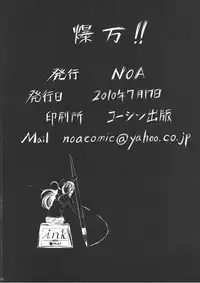 爆万!!
発行 NOA
発行日 2010年7月17日
印刷所 コーシン出版
Mail noaecomic@yahoo.co.jp
ink